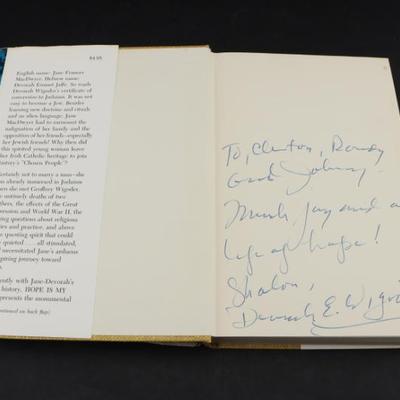 $4.95
English name: Jane Frances
MacDwyer. Hebrew name:
Devorah Emmet Jaffe. So reads
Devorah Wigoder's certificate of
conversion to Judaism. It was not
easy to become a Jew. Besides
learning new doctrine and rituals
and an alien language, Jane
MacDwyer had to surmount the
indignation of her family and the
opposition of her friends—especially
her Jewish friends! Why then did
this spirited young woman leave
her Irish Catholic heritage to join
history's "Chosen People"?
not to marry a man—she
already immersed in Judaism
she met Geoffrey Wigoder.
untimely deaths of two
the effects of the Great
and World War II, the
questions about religious
and practice, and above
questing spirit that could
quieted . . . all stimulated,
necessitated Jane's arduous
journey toward
with Jane-Devorah's
history, HOPE IS MY
presents the monumental
on back flap)
To, Clinton,
and
Much joy and a
life of hope!
Shalom,
Devorah E.